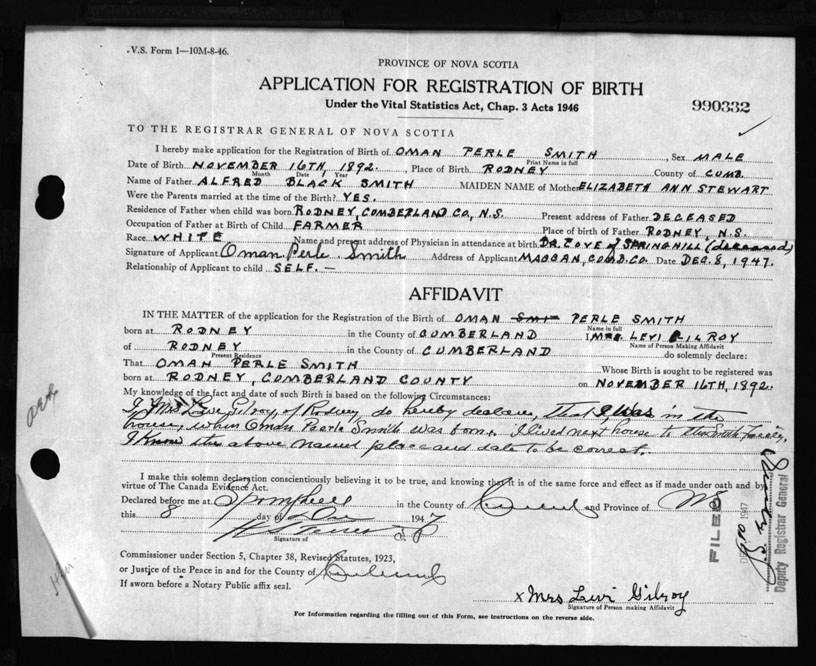 V.S. Form 1—10M-8-46.
PROVINCE OF NOVA SCOTIA
APPLICATION FOR REGISTRATION OF BIRTH
Under the Vital Statistics Act, Chap. 3 Acts 1946
990332
TO THE REGISTRAR GENERAL OF NOVA SCOTIA
I hereby make application for the Registration of Birth of OMAN PERLE SMITH, Sex MALE
Print Name in full
Date of Birth NOVEMBER 16TH, 1892. , Place of Birth RODNEY County of CUMB.
Month Date Year
Name of Father ALFRED BLACK SMITH MAIDEN NAME of Mother ELIZABETH ANN STEWART
Were the Parents married at the time of the Birth? YES.
Residence of Father when child was born RODNEY, CUMBERLAND CO, N.S. Present address of Father DECEASED
Occupation of Father at Birth of Child FARMER Place of birth of Father RODNEY, N.S.
Race WHITE Name and present address of Physician in attendance at birth DR. COVE of SPRINGHILL (deceased)
Signature of Applicant Oman Perle Smith Address of Applicant MACCAN, CUMB. CO. Date DEC. 8, 1947.
Relationship of Applicant to child SELF. —
AFFIDAVIT
IN THE MATTER of the application for the Registration of the Birth of OMAN SMI PERLE SMITH
Name in full
born at RODNEY in the County of CUMBERLAND I MRS. LEVI GILROY
Name of Person Making Affidavit
of RODNEY in the County of CUMBERLAND do solemnly declare:
Present Residence
That OMAN PERLE SMITH Whose Birth is sought to be registered was
born at RODNEY, CUMBERLAND COUNTY on NOVEMBER 16TH, 1892.
My knowledge of the fact and date of such Birth is based on the following Circumstances:
I, Mrs Levi Gilroy, of Rodney, do hereby declare, that I, was in the
house, when Oman Perle Smith was born. I lived next house to the Smith family,
I know the above named place and date to be correct.
I make this solemn declaration conscientiously believing it to be true, and knowing that it is of the same force and effect as if made under oath and by
virtue of The Canada Evidence Act.
Declared before me at in the County of and Province of NS
this 8 day of Dec 1947
Signature of
Commissioner under Section 5, Chapter 38, Revised Statutes, 1923,
or Justice of the Peace in and for the County of
If sworn before a Notary Public affix seal.
x Mrs Levi Gilroy
Signature of Person making Affidavit
For Information regarding the filling out of this Form, see instructions on the reverse side.
FILED
1947
Deputy Registrar General